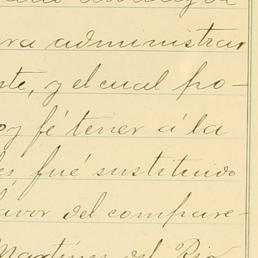 para administrar
ste, y el cual po-
oy fé tener á la
es fué sustituido
favor del compare-
Martínez del Rio